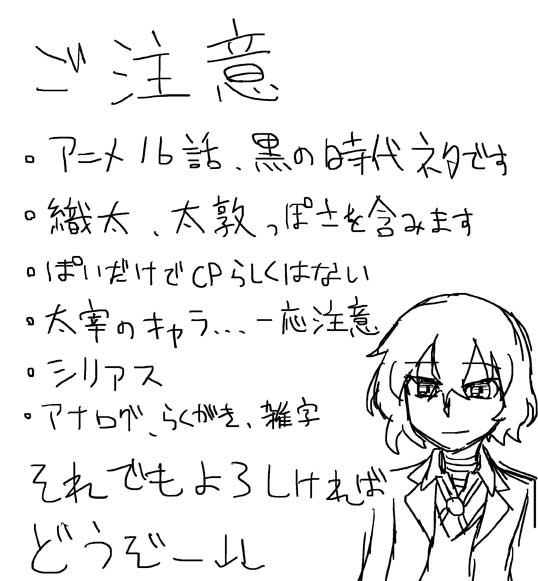 ご注意
・アニメ16話、黒の時代ネタです
・織太、太敦っぽさを含みます
・ぽいだけでCPらしくはない
・太宰のキャラ...一応注意
・シリアス
・アナログ、らくがき、雑字
それでもよろしければ
どうぞー↓↓